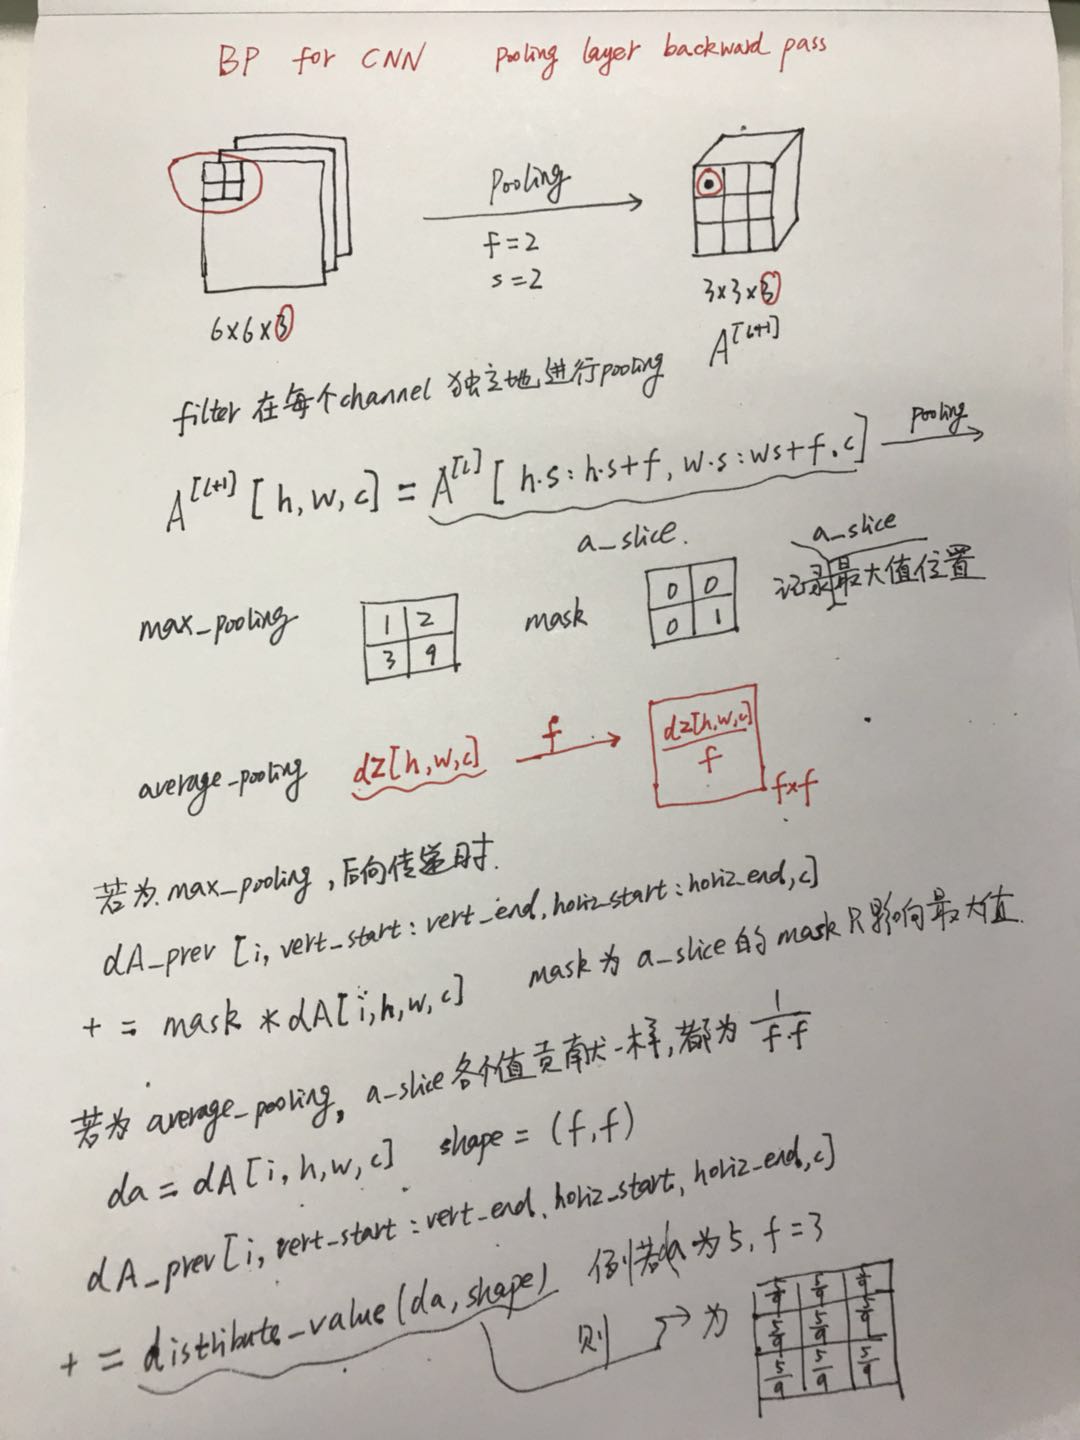 BP for CNN pooling layer backward pass
Pooling
f=2
s=2
6×6×3
3×3×3
A^[l+1]
filter 在每个channel 独立地进行pooling
A^[l+1] [h,w,c] = A^[l] [h·s:h·s+f, w·s:ws+f,c] pooling
a_slice.
a_slice
记录最大值位置
max_pooling
1 2
3 9
mask
0 0
0 1
average_pooling dz[h,w,c] f dz[h,w,c]/f f×f
若为max_pooling,后向传递时.
dA_prev [i, vert_start:vert_end, horiz_start:horiz_end,c]
+= mask * dA[i,h,w,c] mask为 a_slice的mask 只影响最大值.
若为 average_pooling, a_slice各个值贡献一样,都为 1/f·f
da = dA[i,h,w,c] shape = (f,f)
dA_prev[i, vert_start:vert_end, horiz_start, horiz_end,c]
+= distribute_value(da, shape) 例若da为5, f=3
则 → 为
5/9 5/9 5/9
5/9 5/9 5/9
5/9 5/9 5/9